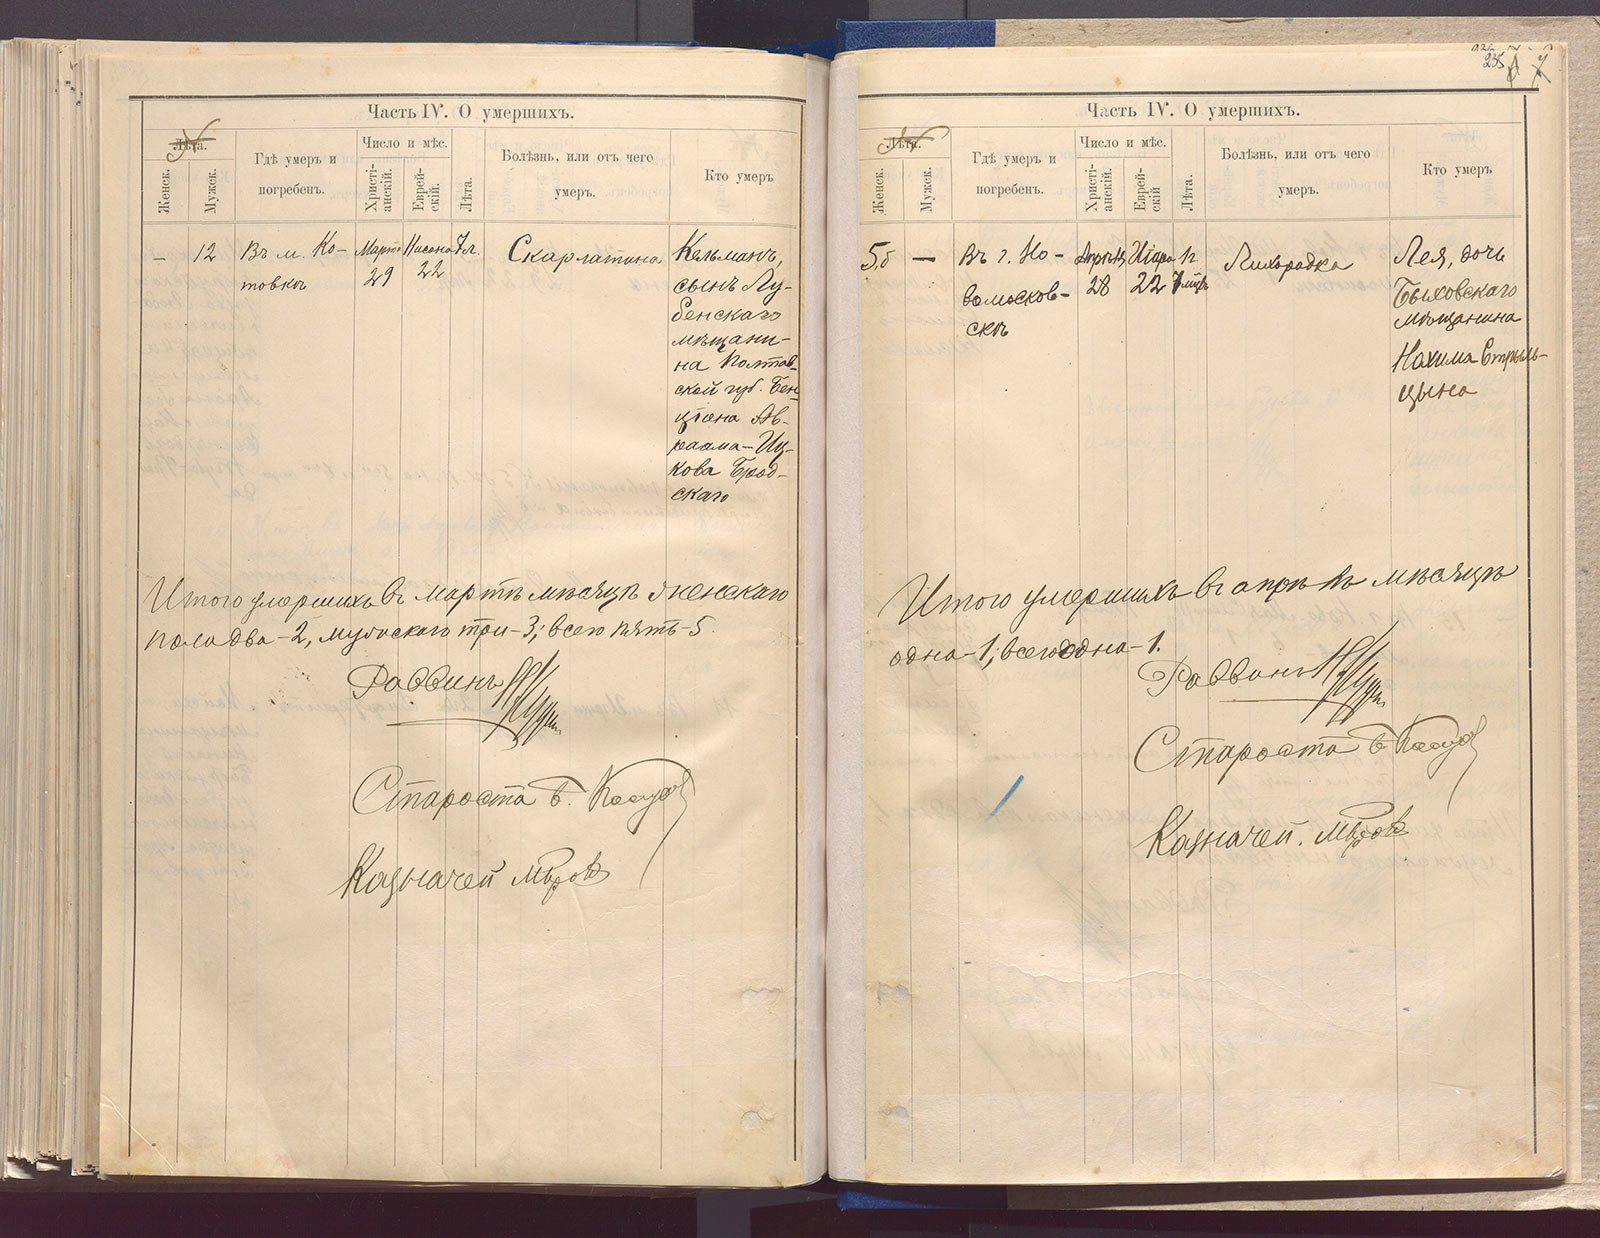 Часть IV. О умершихъ.
Лѣта.
Женск.
Мужск.
Гдѣ умеръ и
погребенъ.
Число и мѣс.
Христі-
анскій.
Еврей-
скій.
Лѣта.
Болѣзнь, или отъ чего
умеръ.
Кто умеръ
—
12
Въ м. Ко-
товкѣ
Марта
29
Нисона
22
7 л.
Скарлатина
Кельманъ,
сынъ Лу-
бенскаго
мѣщани-
на Полтав-
ской губ. Бен-
ціона Ав-
раама-Иц-
кова Брод-
скаго
Итого умершихъ въ мартѣ мѣсяцѣ женскаго
пола два-2, мужскаго три-3; всего пять-5.
Раввинъ
Староста Б.
Казначей
235
Часть IV. О умершихъ.
Лѣта.
Женск.
Мужск.
Гдѣ умеръ и
погребенъ.
Число и мѣс.
Христі-
анскій.
Еврей-
скій
Лѣта.
Болѣзнь, или отъ чего
умеръ.
Кто умеръ
—
Въ г. Но-
вомосков-
скѣ
28
Иіара
22
Лихорадка
Лея, дочь
Быховскаго
мѣщанина
Нохима Стрыль-
цына
Итого умершихъ въ мѣсяцѣ
одна-1; всего одна-1.
Раввинъ
Староста Б
Казначей.